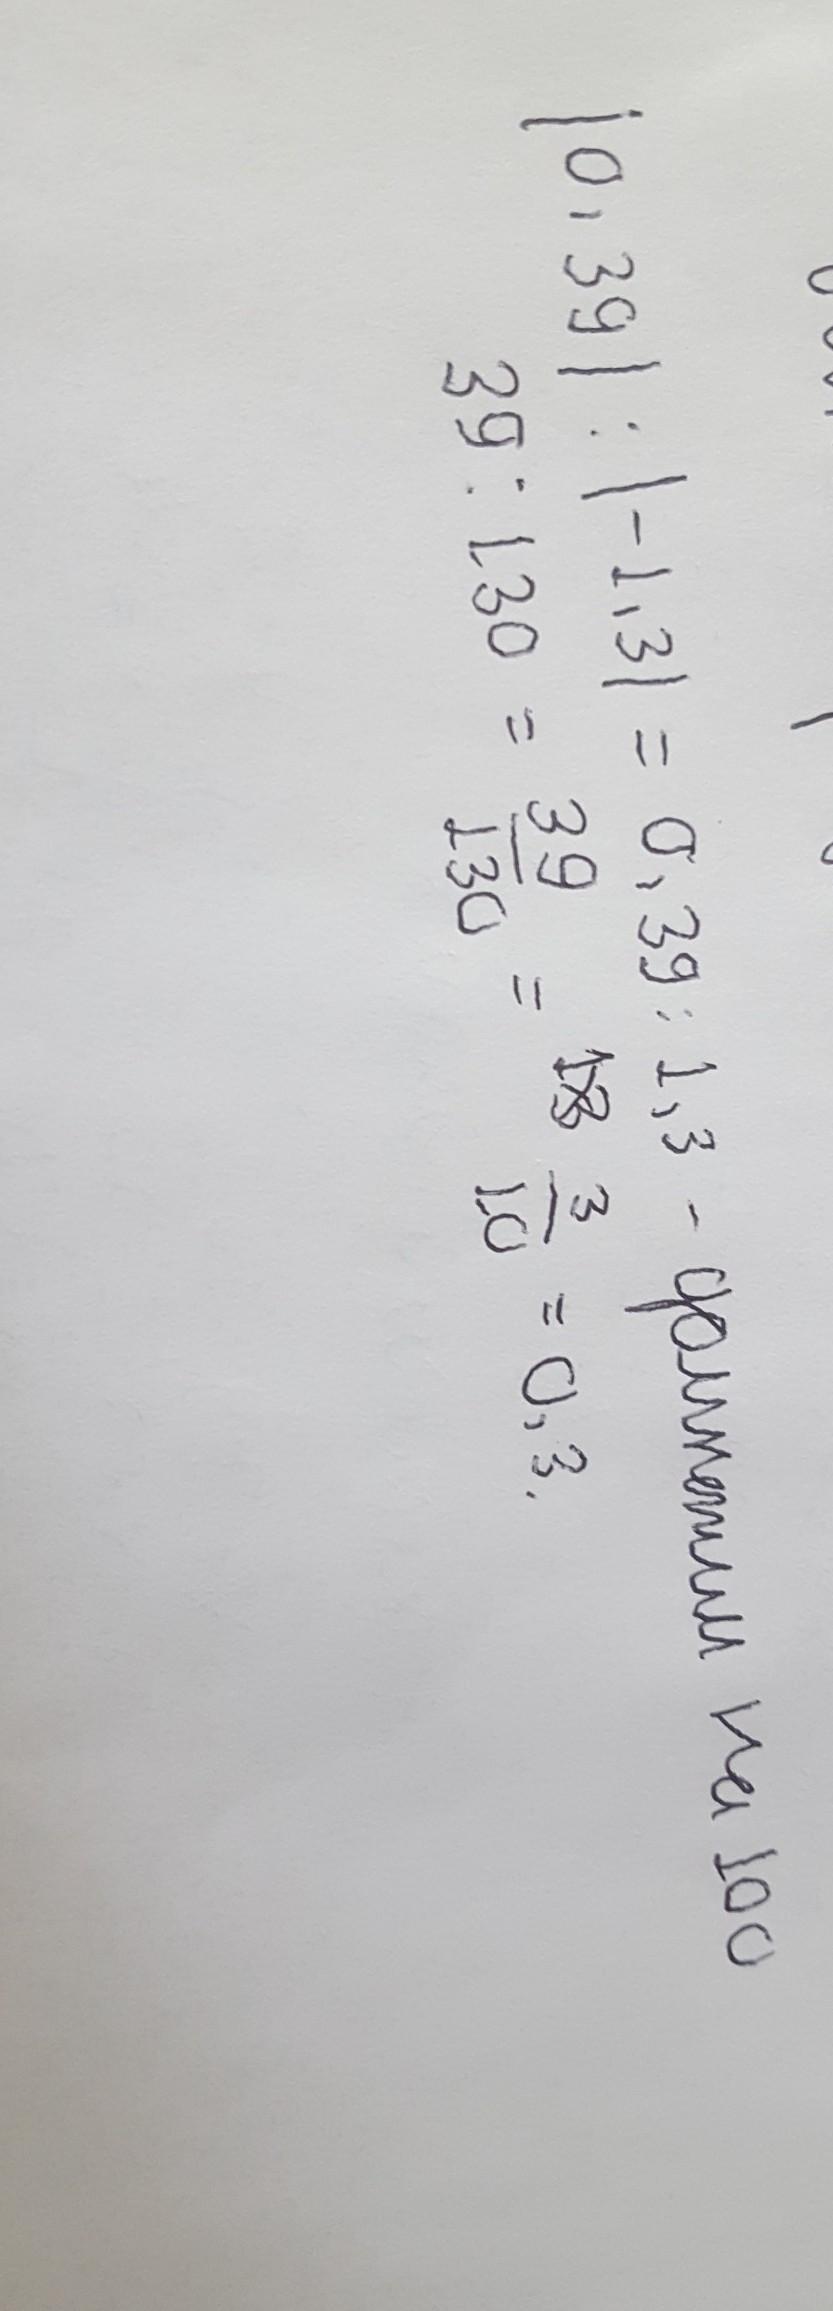 |0,39| : |-1,3| = 0,39 : 1,3 - домножим на 100
39 : 130 = 39/130 = 3/10 = 0,3.